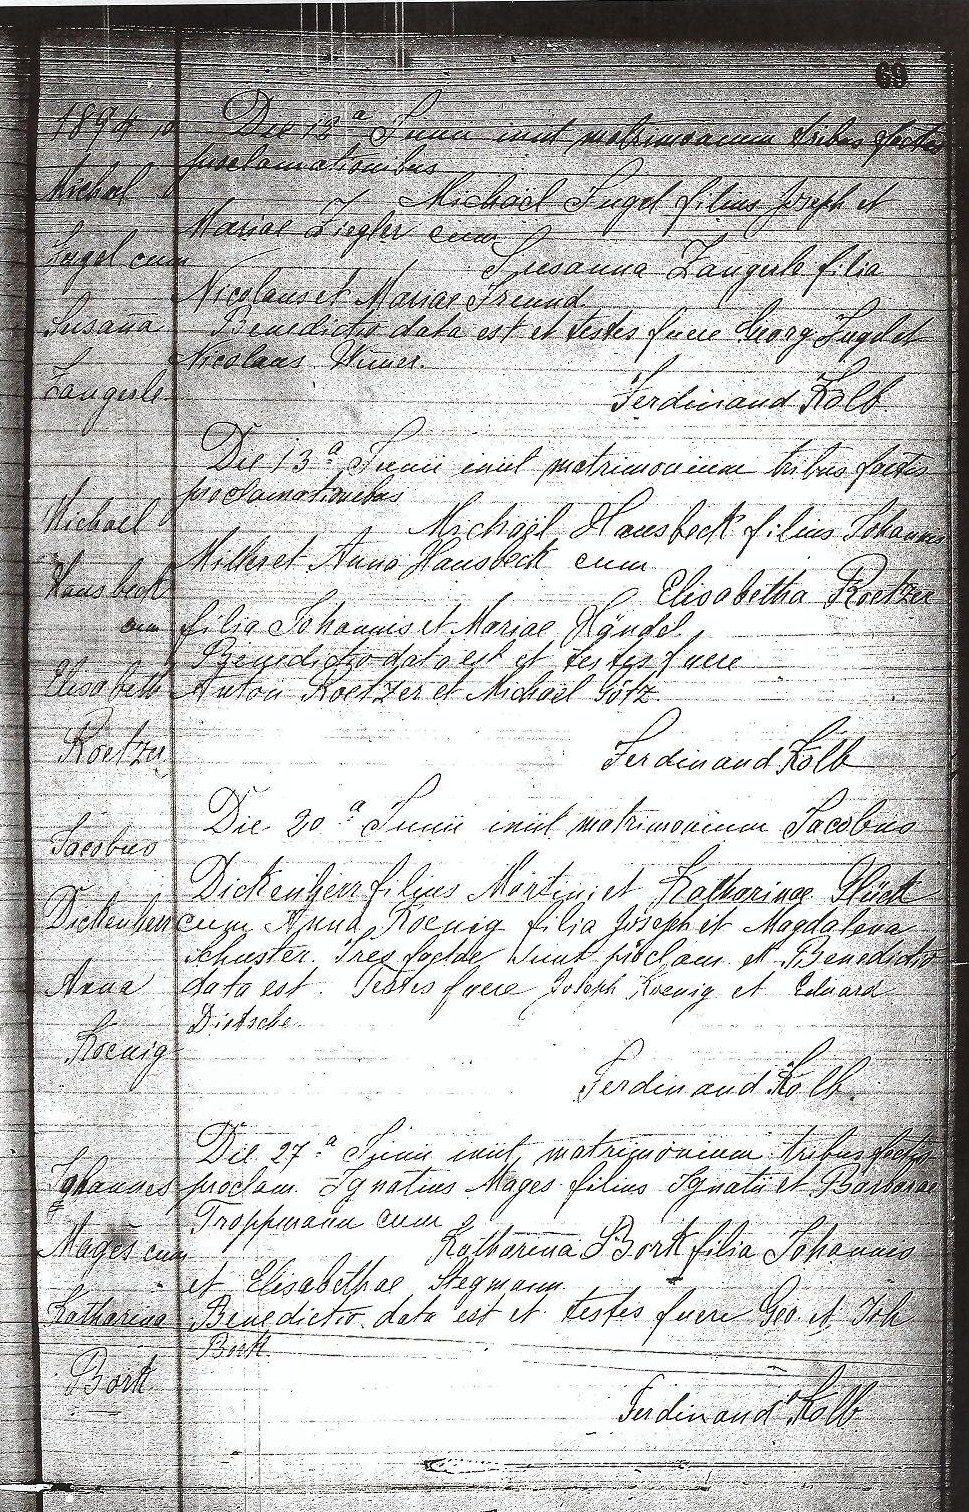 69
1894
Die 13a Junii iniit matrimonium tribus factis
proclamationibus
Michael
Michaël Zugel filius Joseph et
Mariae Ziegler cum
Zugel cum
Susanna Zangerle filia
Nicolaus et Mariae Freund.
Susana
Benedictio data est et testes fuere Georg Zugel et
Nicolaus
Zangerle
Ferdinand Kolb
Die 13a Junii iniit matrimonium tribus factis
proclamationibus
Michael
Michaël Hausbeck filius Johannis
Miller et Anna Hausbeck cum
Hausbeck
Elisabetha Roetzer
cum
filia Johannis et Mariae Händel.
Benedictio data est et testes fuere
Elisabeth
Anton Roetzer et Michaël Götz
Roetzer
Ferdinand Kolb
Die 20a Junii iniit matrimonium Jacobus
Jacobus
Dickenherr filius Martini et Katharinae Glück
Dickenherr
cum Anna Koenig filia Joseph et Magdalena
Schuster. Tres factae sunt proclam. et Benedictio
Anna
data est. Testes fuere Joseph Koenig et Eduard
Dietsche.
Koenig
Ferdinand Kolb.
Die 27a Junii iniit matrimonium tribus factis
Johannes
proclam. Ignatius Mages filius Ignatii et Barbarae
Troppmann cum
Mages cum
Katharina Bork filia Johannis
et Elisabethae Stegmann.
Katharina
Benedictio data est et testes fuere Geo. et Joh
Bork.
Bork
Ferdinand Kolb